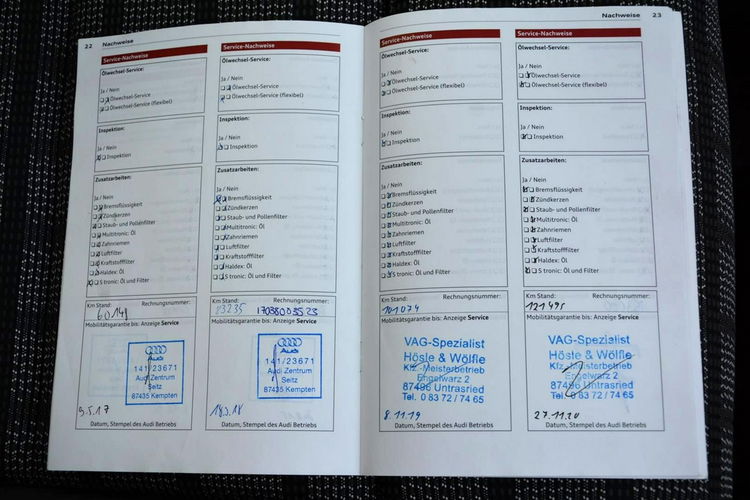 22 Nachweise
Service-Nachweise
Ölwechsel-Service:
Ja / Nein
Ölwechsel-Service
Ölwechsel-Service (flexibel)
Inspektion:
Ja / Nein
Inspektion
Zusatzarbeiten:
Ja / Nein
Bremsflüssigkeit
Zündkerzen
Staub- und Pollenfilter
Multitronic: Öl
Zahnriemen
Luftfilter
Kraftstofffilter
Haldex: Öl
S tronic: Öl und Filter
Km Stand: Rechnungsnummer:
60141
Mobilitätsgarantie bis: Anzeige Service
Audi
141/23671
Audi Zentrum
Seitz
87435 Kempten
9.5.17
Datum, Stempel des Audi Betriebs
Service-Nachweise
Ölwechsel-Service:
Ja / Nein
Ölwechsel-Service
Ölwechsel-Service (flexibel)
Inspektion:
Ja / Nein
Inspektion
Zusatzarbeiten:
Ja / Nein
Bremsflüssigkeit
Zündkerzen
Staub- und Pollenfilter
Multitronic: Öl
Zahnriemen
Luftfilter
Kraftstofffilter
Haldex: Öl
S tronic: Öl und Filter
Km Stand: Rechnungsnummer:
Mobilitätsgarantie bis: Anzeige Service
Audi
141/23671
Audi Zentrum
Seitz
87435 Kempten
Datum, Stempel des Audi Betriebs
Nachweise 23
Service-Nachweise
Ölwechsel-Service:
Ja / Nein
Ölwechsel-Service
Ölwechsel-Service (flexibel)
Inspektion:
Ja / Nein
Inspektion
Zusatzarbeiten:
Ja / Nein
Bremsflüssigkeit
Zündkerzen
Staub- und Pollenfilter
Multitronic: Öl
Zahnriemen
Luftfilter
Kraftstofffilter
Haldex: Öl
S tronic: Öl und Filter
Km Stand: Rechnungsnummer:
101074
Mobilitätsgarantie bis: Anzeige Service
VAG-Spezialist
Hösle & Wölfle
Kfz.-Meisterbetrieb
Engelwarz 2
87496 Untrasried
Tel. 0 83 72 / 74 65
8.11.19
Datum, Stempel des Audi Betriebs
Service-Nachweise
Ölwechsel-Service:
Ja / Nein
Ölwechsel-Service
Ölwechsel-Service (flexibel)
Inspektion:
Ja / Nein
Inspektion
Zusatzarbeiten:
Ja / Nein
Bremsflüssigkeit
Zündkerzen
Staub- und Pollenfilter
Multitronic: Öl
Zahnriemen
Luftfilter
Kraftstofffilter
Haldex: Öl
S tronic: Öl und Filter
Km Stand: Rechnungsnummer:
121495
Mobilitätsgarantie bis: Anzeige Service
VAG-Spezialist
Hösle & Wölfle
Kfz.-Meisterbetrieb
Engelwarz 2
87496 Untrasried
Tel. 0 83 72 / 74 65
27.11.20
Datum, Stempel des Audi Betriebs